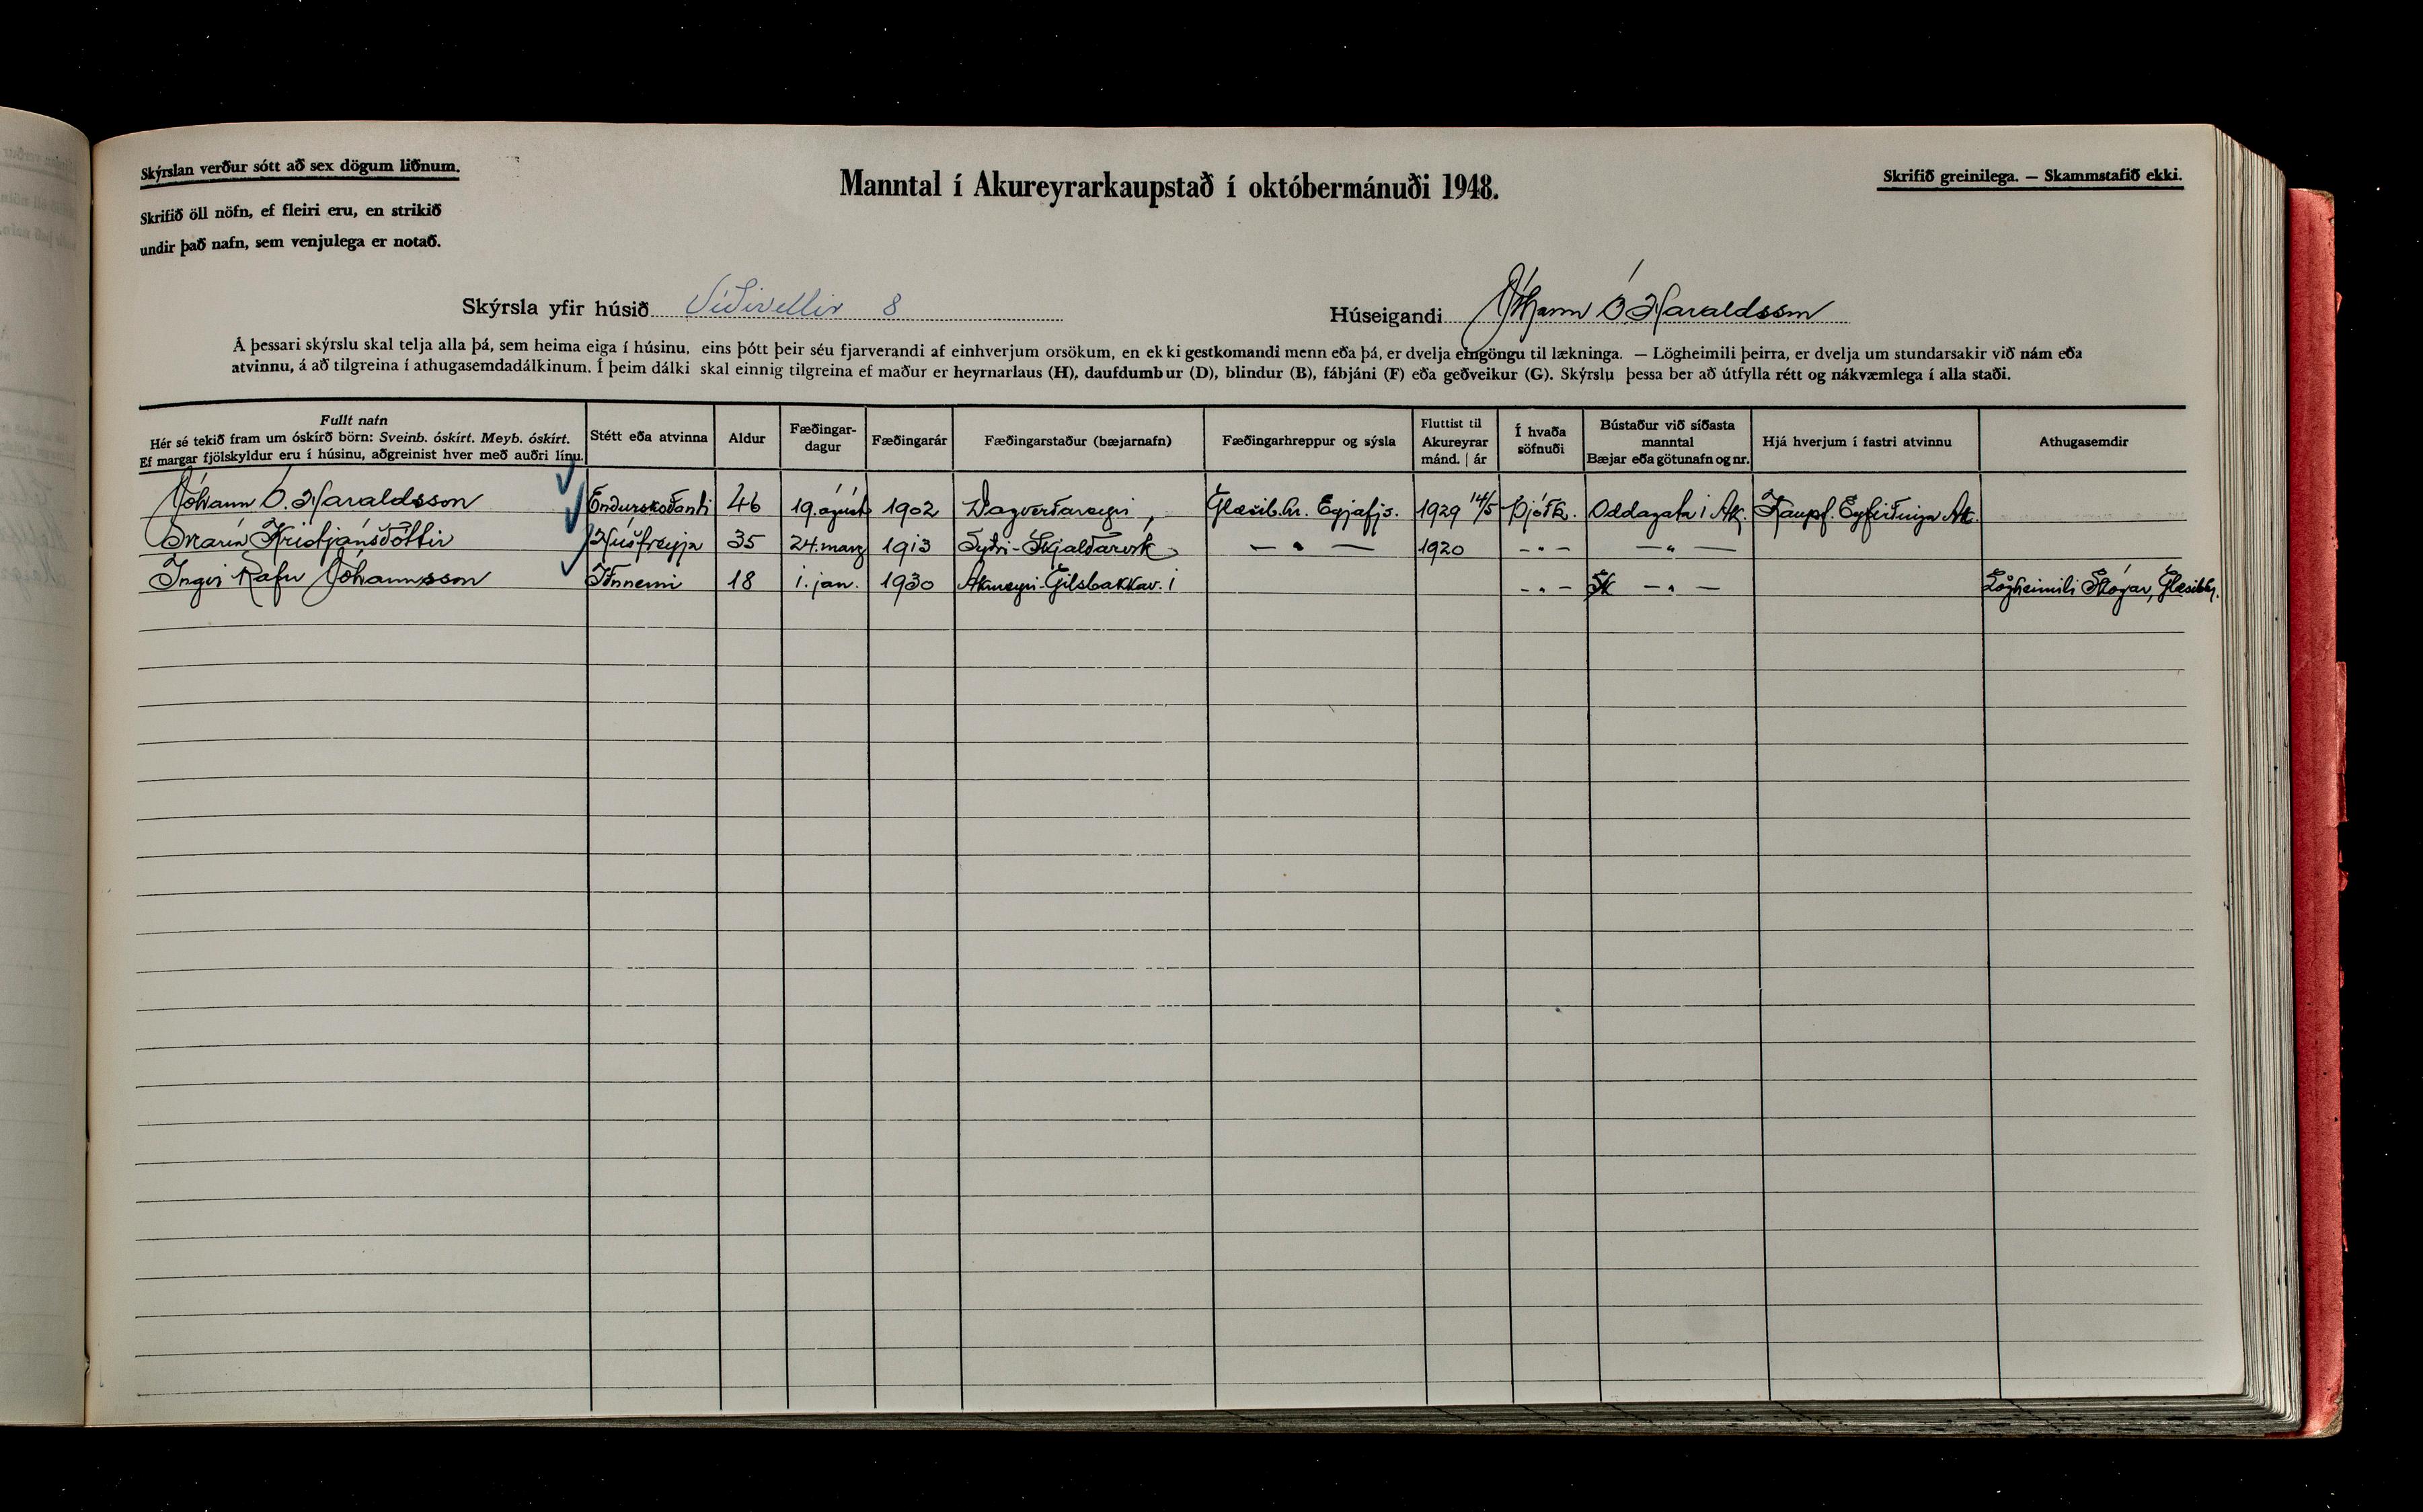 Skýrslan verður sótt að sex dögum liðnum.
Skrifið öll nöfn, ef fleiri eru, en strikið
undir það nafn, sem venjulega er notað.
Manntal í Akureyrarkaupstað í októbermánuði 1948.
Skrifið greinilega. — Skammstafið ekki.
Skýrsla yfir húsið Víðivellir 8
Húseigandi Jóhann Ó Haraldsson
Á þessari skýrslu skal telja alla þá, sem heima eiga í húsinu, eins þótt þeir séu fjarverandi af einhverjum orsökum, en ekki gestkomandi menn eða þá, er dvelja eingöngu til lækninga. — Lögheimili þeirra, er dvelja um stundarsakir við nám eða
atvinnu, á að tilgreina í athugasemdadálkinum. Í þeim dálki skal einnig tilgreina ef maður er heyrnarlaus (H), daufdumbur (D), blindur (B), fábjáni (F) eða geðveikur (G). Skýrslu þessa ber að útfylla rétt og nákvæmlega í alla staði.
Fullt nafn
Hér sé tekið fram um óskírð börn: Sveinb. óskírt. Meyb. óskírt.
Ef margar fjölskyldur eru í húsinu, aðgreinist hver með auðri línu.
Stétt eða atvinna
Aldur
Fæðingar-
dagur
Fæðingarár
Fæðingarstaður (bæjarnafn)
Fæðingarhreppur og sýsla
Fluttist til
Akureyrar
mánd. | ár
Í hvaða
söfnuði
Bústaður við síðasta
manntal
Bæjar eða götunafn og nr.
Hjá hverjum í fastri atvinnu
Athugasemdir
Jóhann Ó. Haraldsson Endurskoðandi 46 19. ágúst 1902 Dagverðareyri, Glæsib.hr. Eyjafjs. 1929 14/5 Þjóðk. Oddagata 1 Ak. Kaupf. Eyfirðinga Ak.
María Kristjánsdóttir Húsfreyja 35 24. marz 1913 Syðri-Skjaldarvík — " — 1920 - " - — " —
Ingvi Rafn Jóhannsson Iðnnemi 18 1. jan. 1930 Akureyri-Gilsbakkav. 1 - " - — " — Lögheimili Skógar, Glæsibhr.